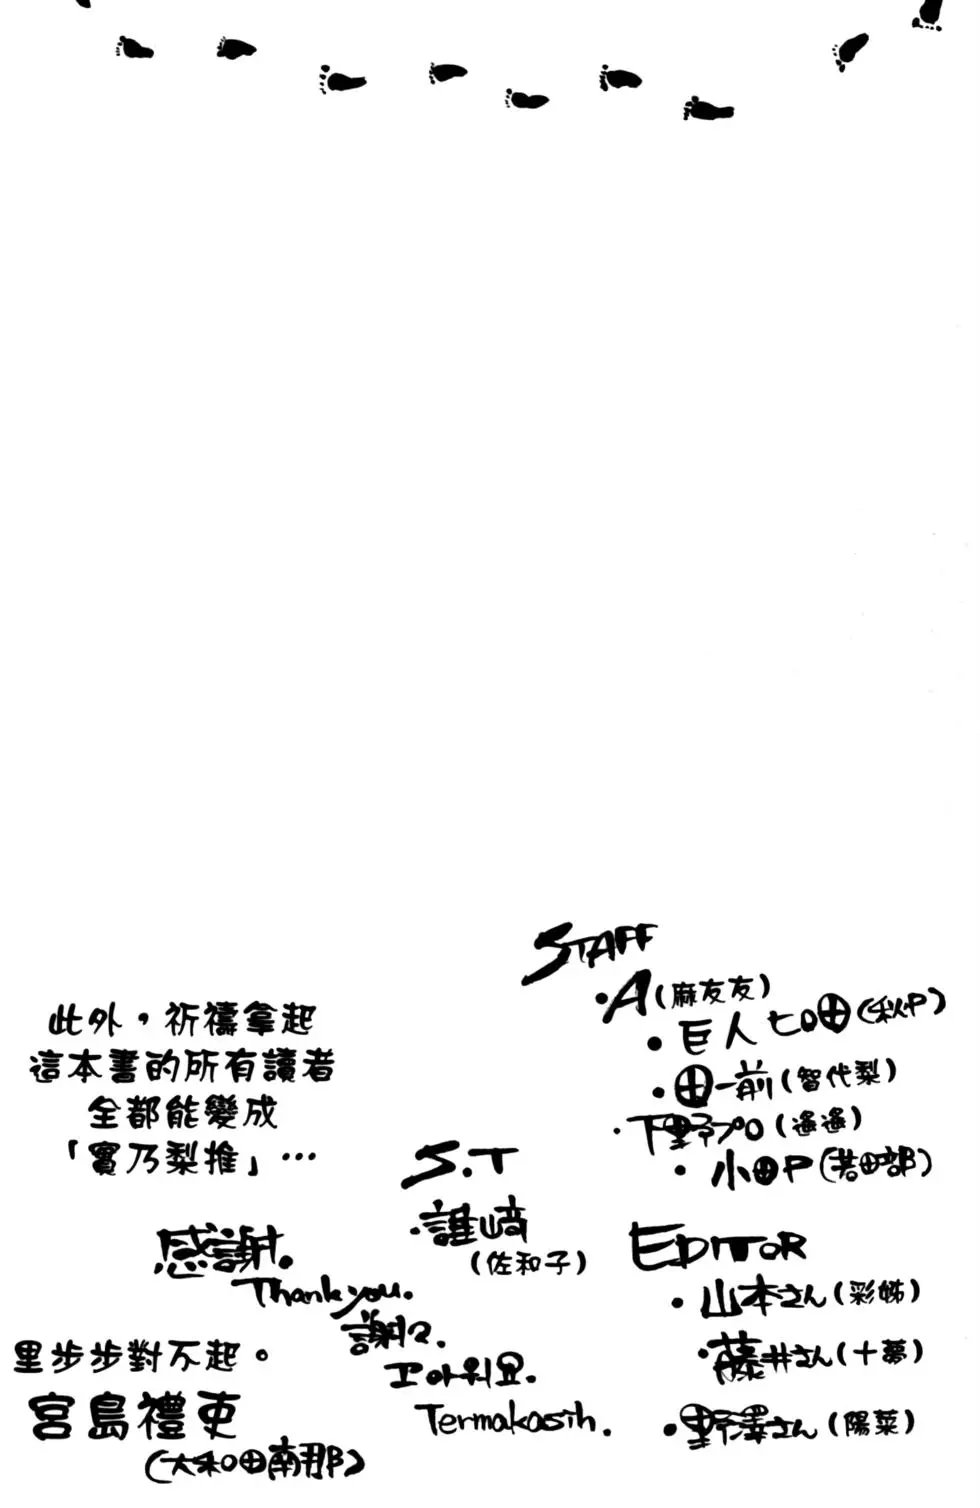 STAFF
・A(麻友友)
・巨人ヒロ田(秋P)
・田一前(智代梨)
・下野プロ(遙遙)
・小田P(若田部)
EDITOR
・山本さん(彩姊)
・藤井さん(十夢)
・野澤さん(陽菜)
S.T
・誰崎
(佐和子)
此外，祈禱拿起
這本書的所有讀者
全都能變成
「實乃梨推」…
感謝.
Thank you.
謝々.
고마워요.
Termakasih.
里步步對不起。
宮島禮吏
(大和田南那)